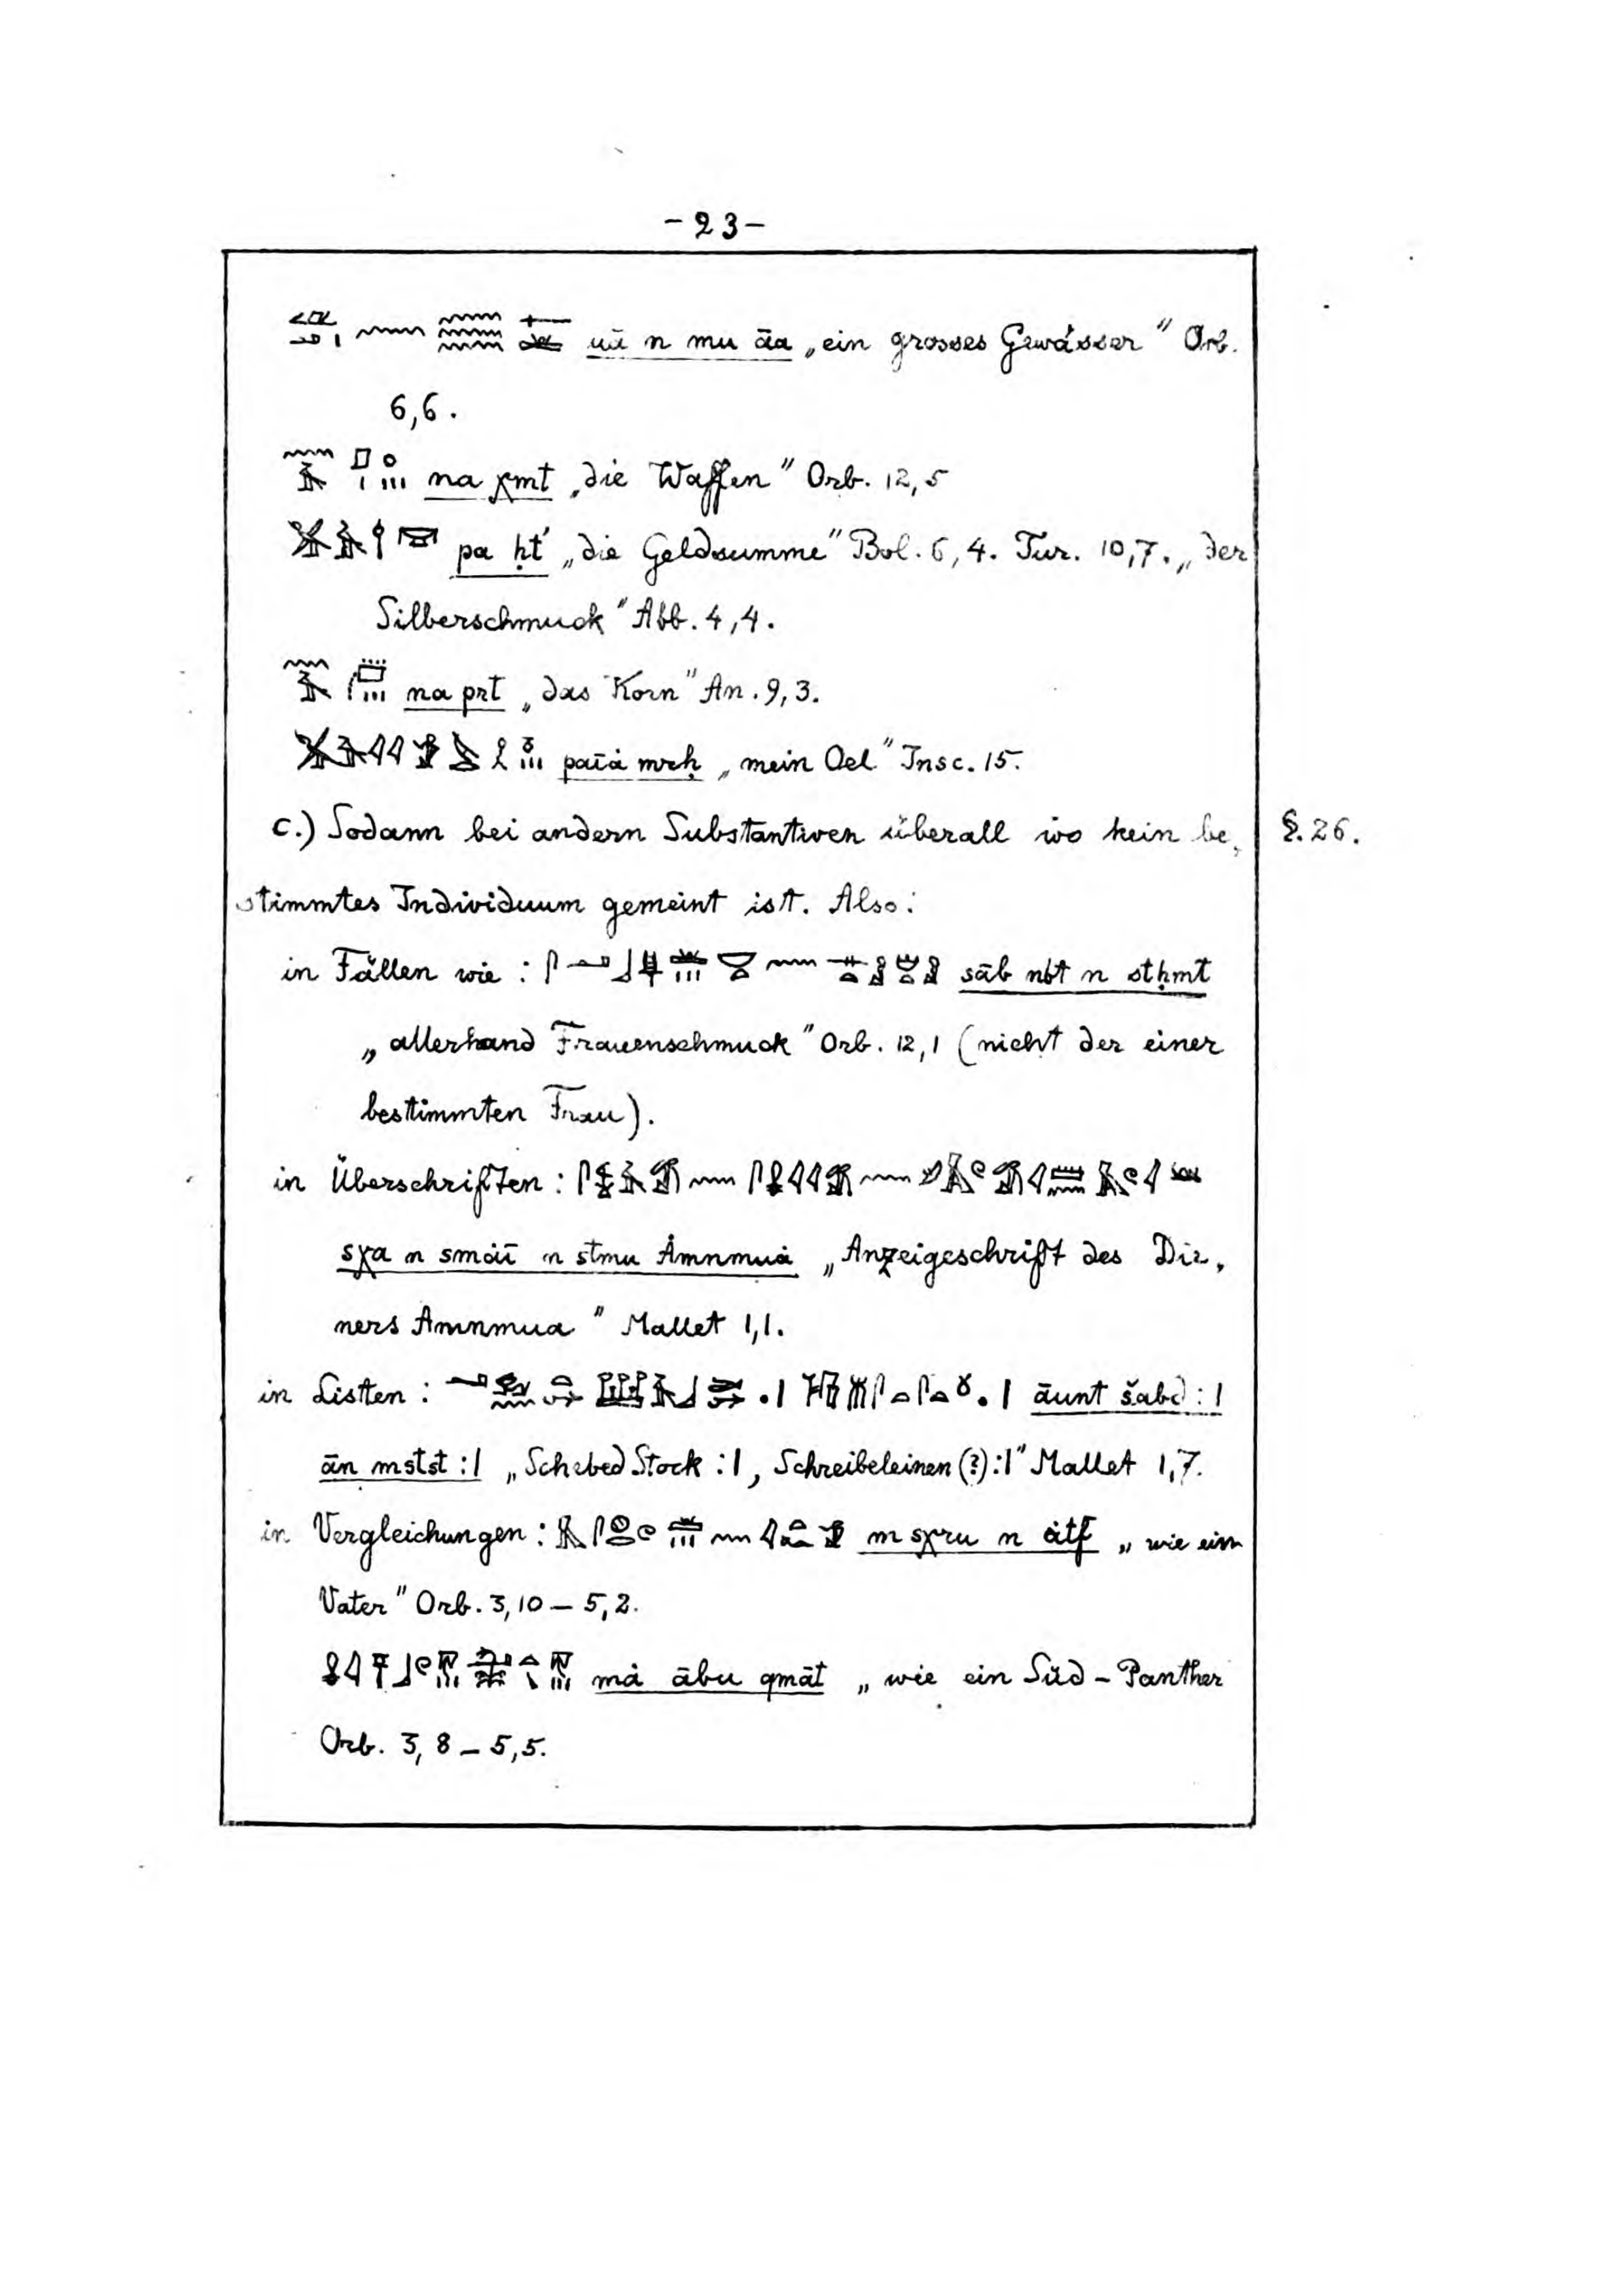 -23-
uā n mu āa „ein grosses Gewässer" Orb.
6,6.
na χmt „die Waffen" Orb. 12,5
pa ḥt' „die Geldsumme" Bol. 6,4. Tur. 10,7. „der
Silberschmuck" Abb. 4,4.
na prt „das Korn" An. 9,3.
paīȧ mrḥ „mein Oel" Insc. 15.
c.) Sodann bei andern Substantiven überall wo kein be- §. 26.
stimmtes Individuum gemeint ist. Also:
in Fällen wie: sāb nbt n stḥmt
„allerhand Frauenschmuck" Orb. 12,1 (nicht der einer
bestimmten Frau).
in Überschriften:
sχa n smȧī n stmu Ȧmnmuȧ „Anzeigeschrift des Die-
ners Amnmua" Mallet 1,1.
in Listen: āunt šabd :|
ān mstst :| „Schebed Stock :|, Schreibeleinen (?) :|" Mallet 1,7.
in Vergleichungen: m sχru n ȧtf „wie ein
Vater" Orb. 3,10 – 5,2.
mȧ ābu qmāt „wie ein Süd-Panther
Orb. 3,8 – 5,5.